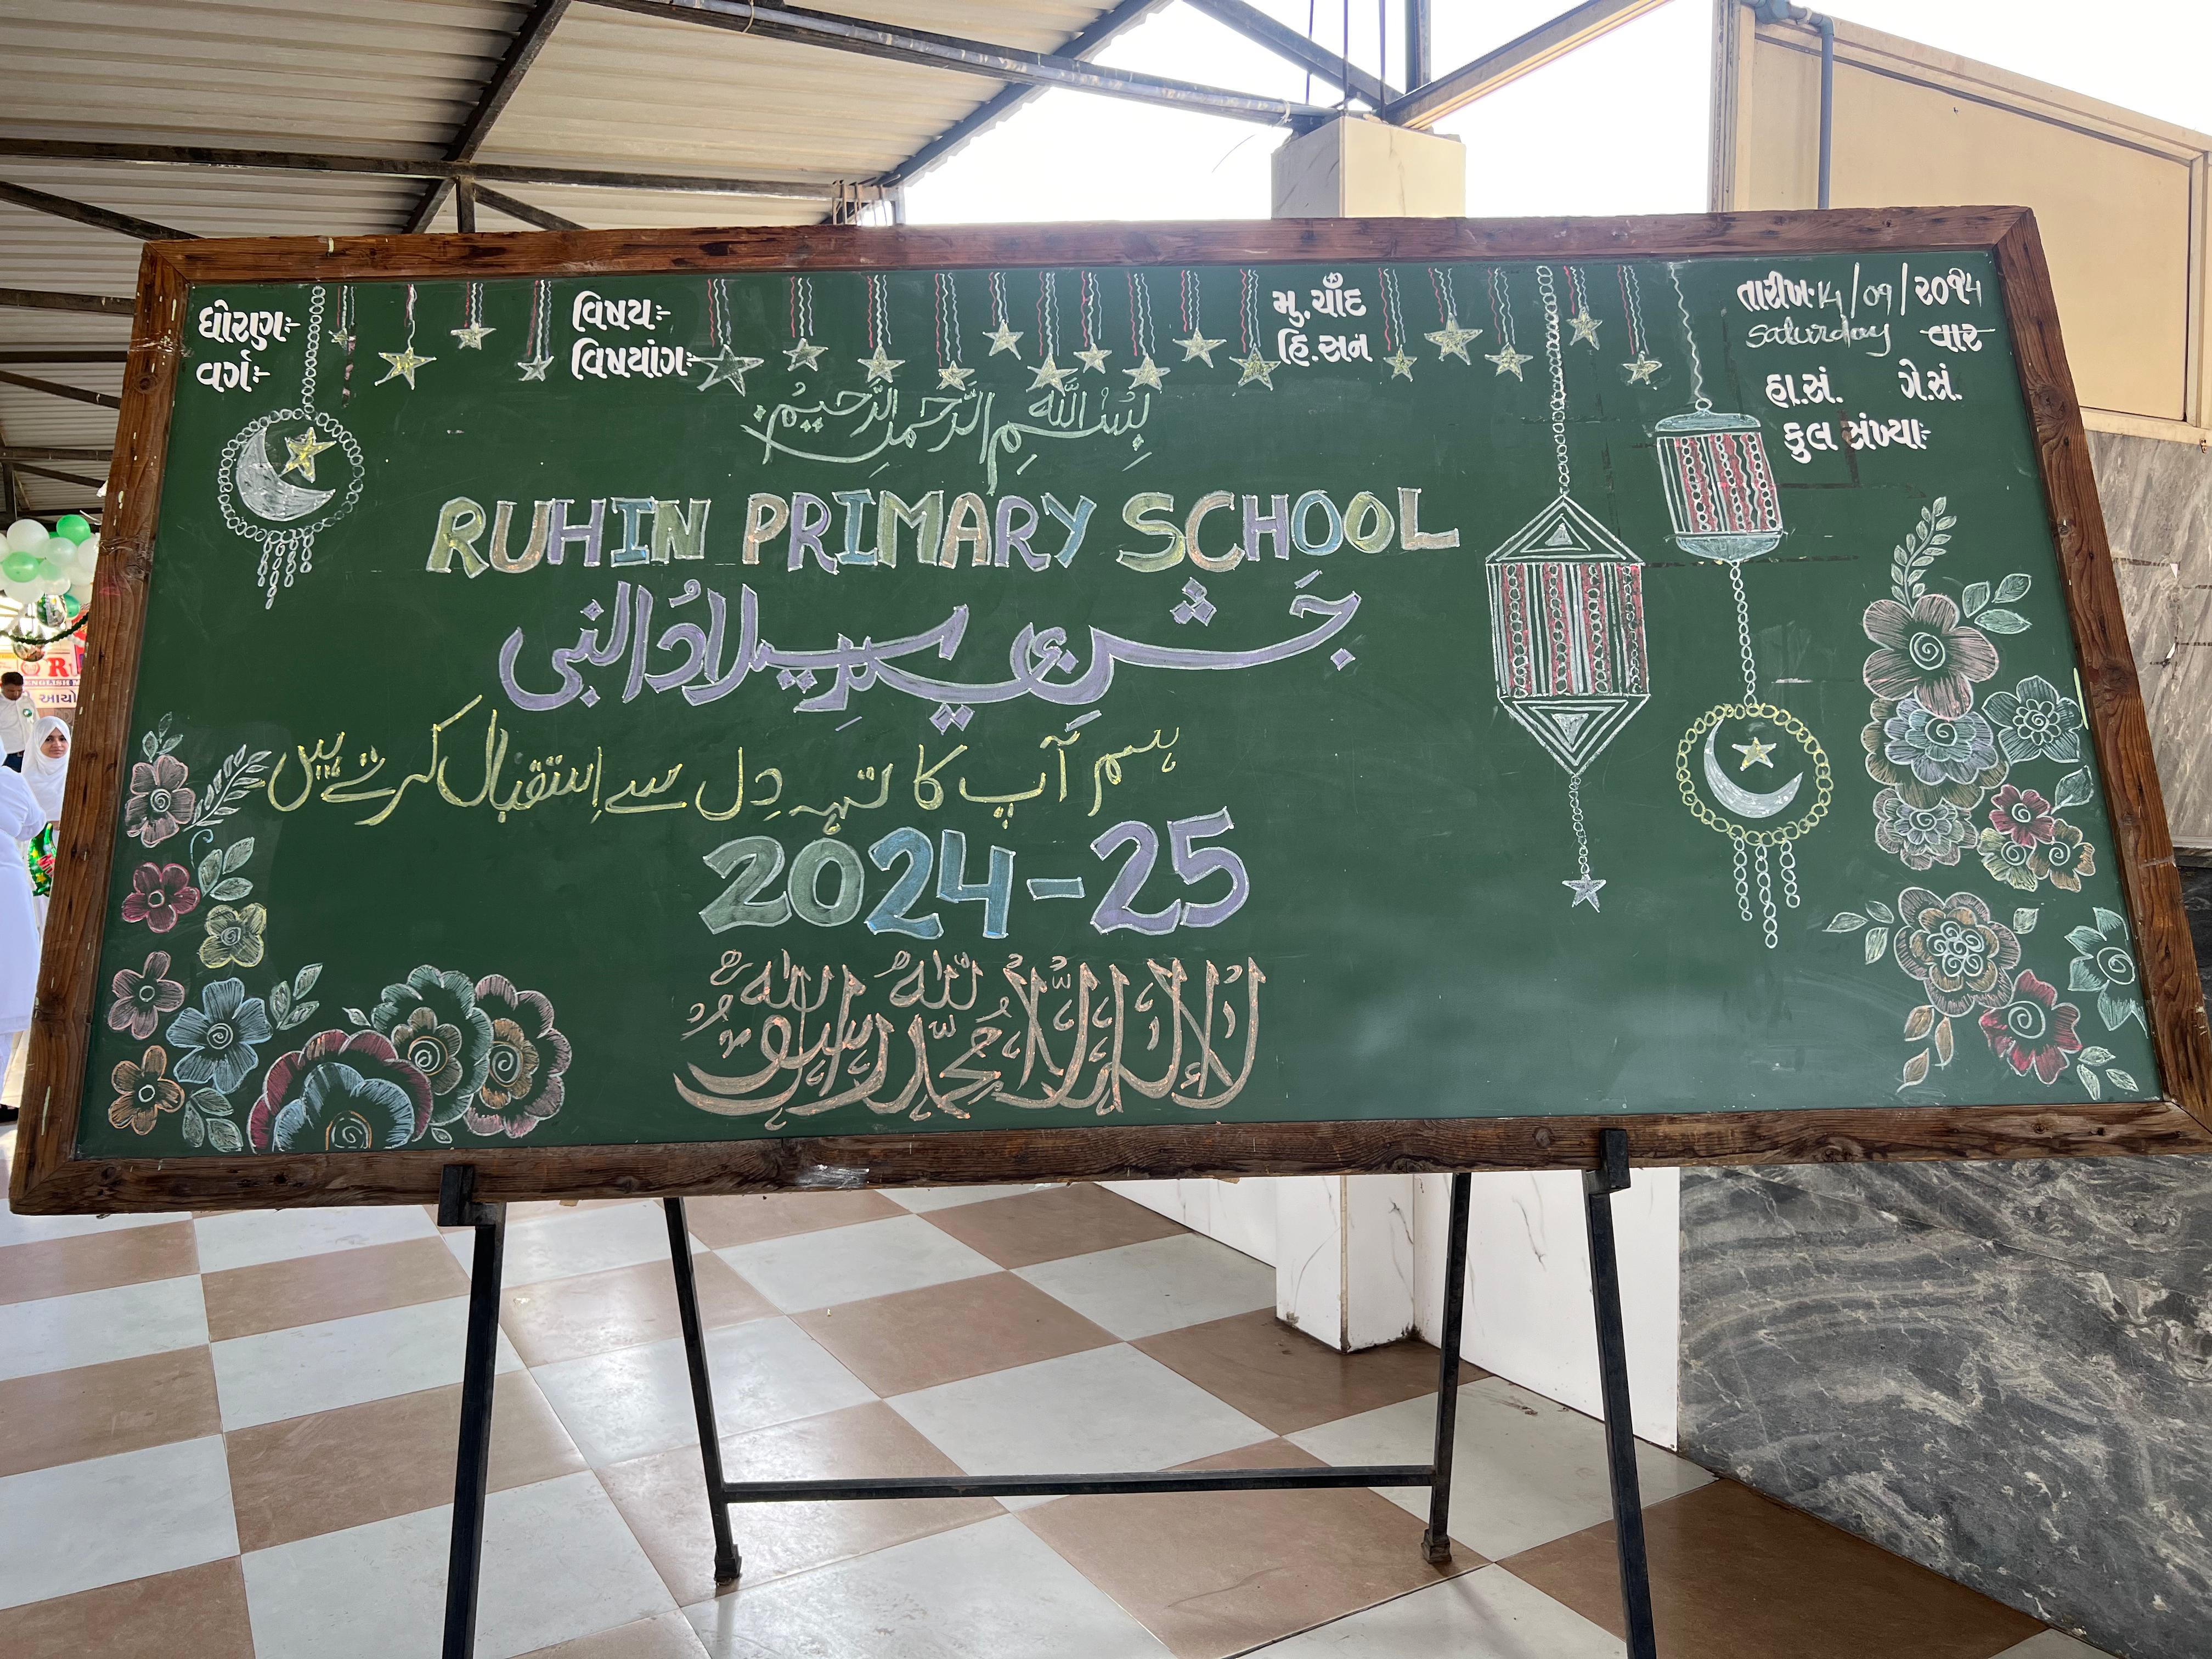 ધોરણ:-
વર્ગ:-
વિષય:-
વિષયાંગ:-
મુ.ચાઁદ
હિ.સન
તારીખ:14/09/૨૦૧4
Saturday વાર
હા.સં. ગે.સં.
કુલ સંખ્યા:-
بِسْمِ اللّٰهِ الرَّحْمٰنِ الرَّحِيْمِ
RUHIN PRIMARY SCHOOL
جَشنِ عید میلادُالنبی
ہم آپ کا تہہ دِل سے اِستقبال کرتے ہیں
2024-25
لَا اِلٰهَ اِلَّا اللّٰهُ مُحَمَّدٌ رَسُوْلُ اللّٰهِ
ENGLISH M
આયો